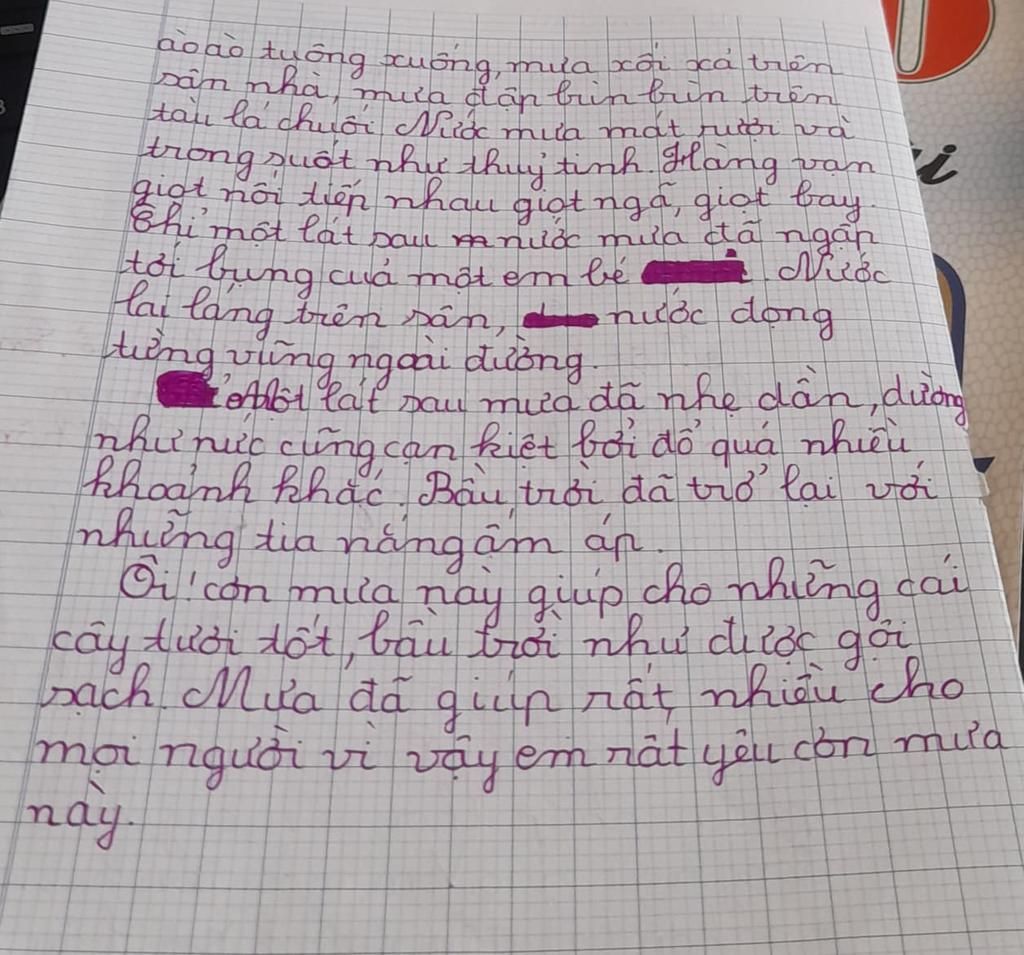 ào ào tuông xuống, mưa xối xả trên
sân nhà, mưa đập bùn bùn trên
tàu lá chuối. Nước mưa mát rười và
trong suốt như thuỷ tinh. Hàng vạn
giọt nối tiếp nhau giọt ngã, giọt bay.
Chỉ một lát sau nước mưa đã ngập
tới bụng của một em bé. Nước
lai láng trên sân, nước dọng
từng vũng ngoài đường.
Một lát sau mưa đã nhẹ dần, dường
như nức cũng cạn kiệt bởi đổ quá nhiều
khoảnh khắc. Bầu trời đã trở lại với
những tia nắng ấm áp.
Ôi! cơn mưa này giúp cho những cái
cây tươi tốt, bầu trời như được gội
sạch. Mưa đã giúp rất nhiều cho
mọi người vì vậy em rất yêu cơn mưa
này.